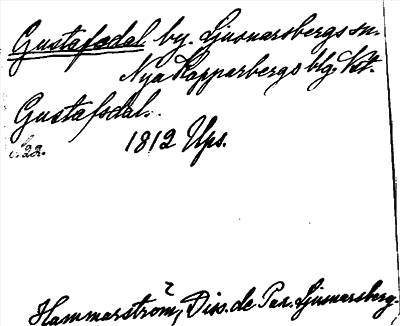 Gustafsdal by. Ljusnarsbergs sn.
Nya Kopparbergs blg. Vst.
Gustafsdal.
1812 Ups.
Hammarström, Diss. de Par. Ljusnarsberg.